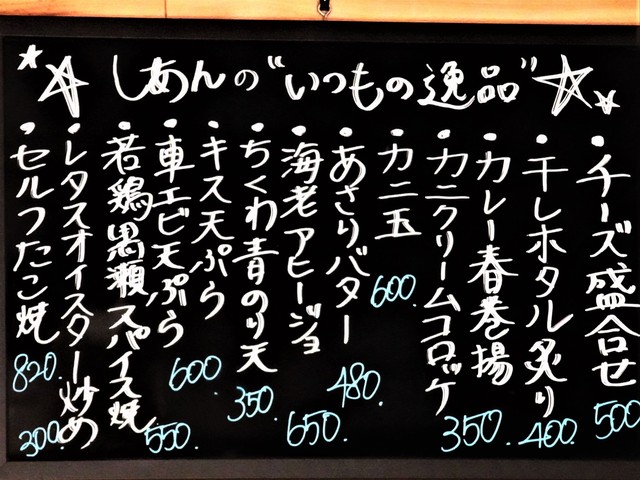 しあんの"いつもの逸品"
・チーズ盛合せ 500
・干しホタル炙り 400.
・カレー春巻揚
・カニクリームコロッケ 350.
・カニ玉 600.
・あさりバター 480.
・海老アヒージョ 650.
・ちくわ青のり天 350.
・キス天ぷら
・車エビ天ぷら 600.
・若鶏黒瀬スパイス焼 550.
・レタスオイスター炒め 300.
・セルフたこ焼 820.